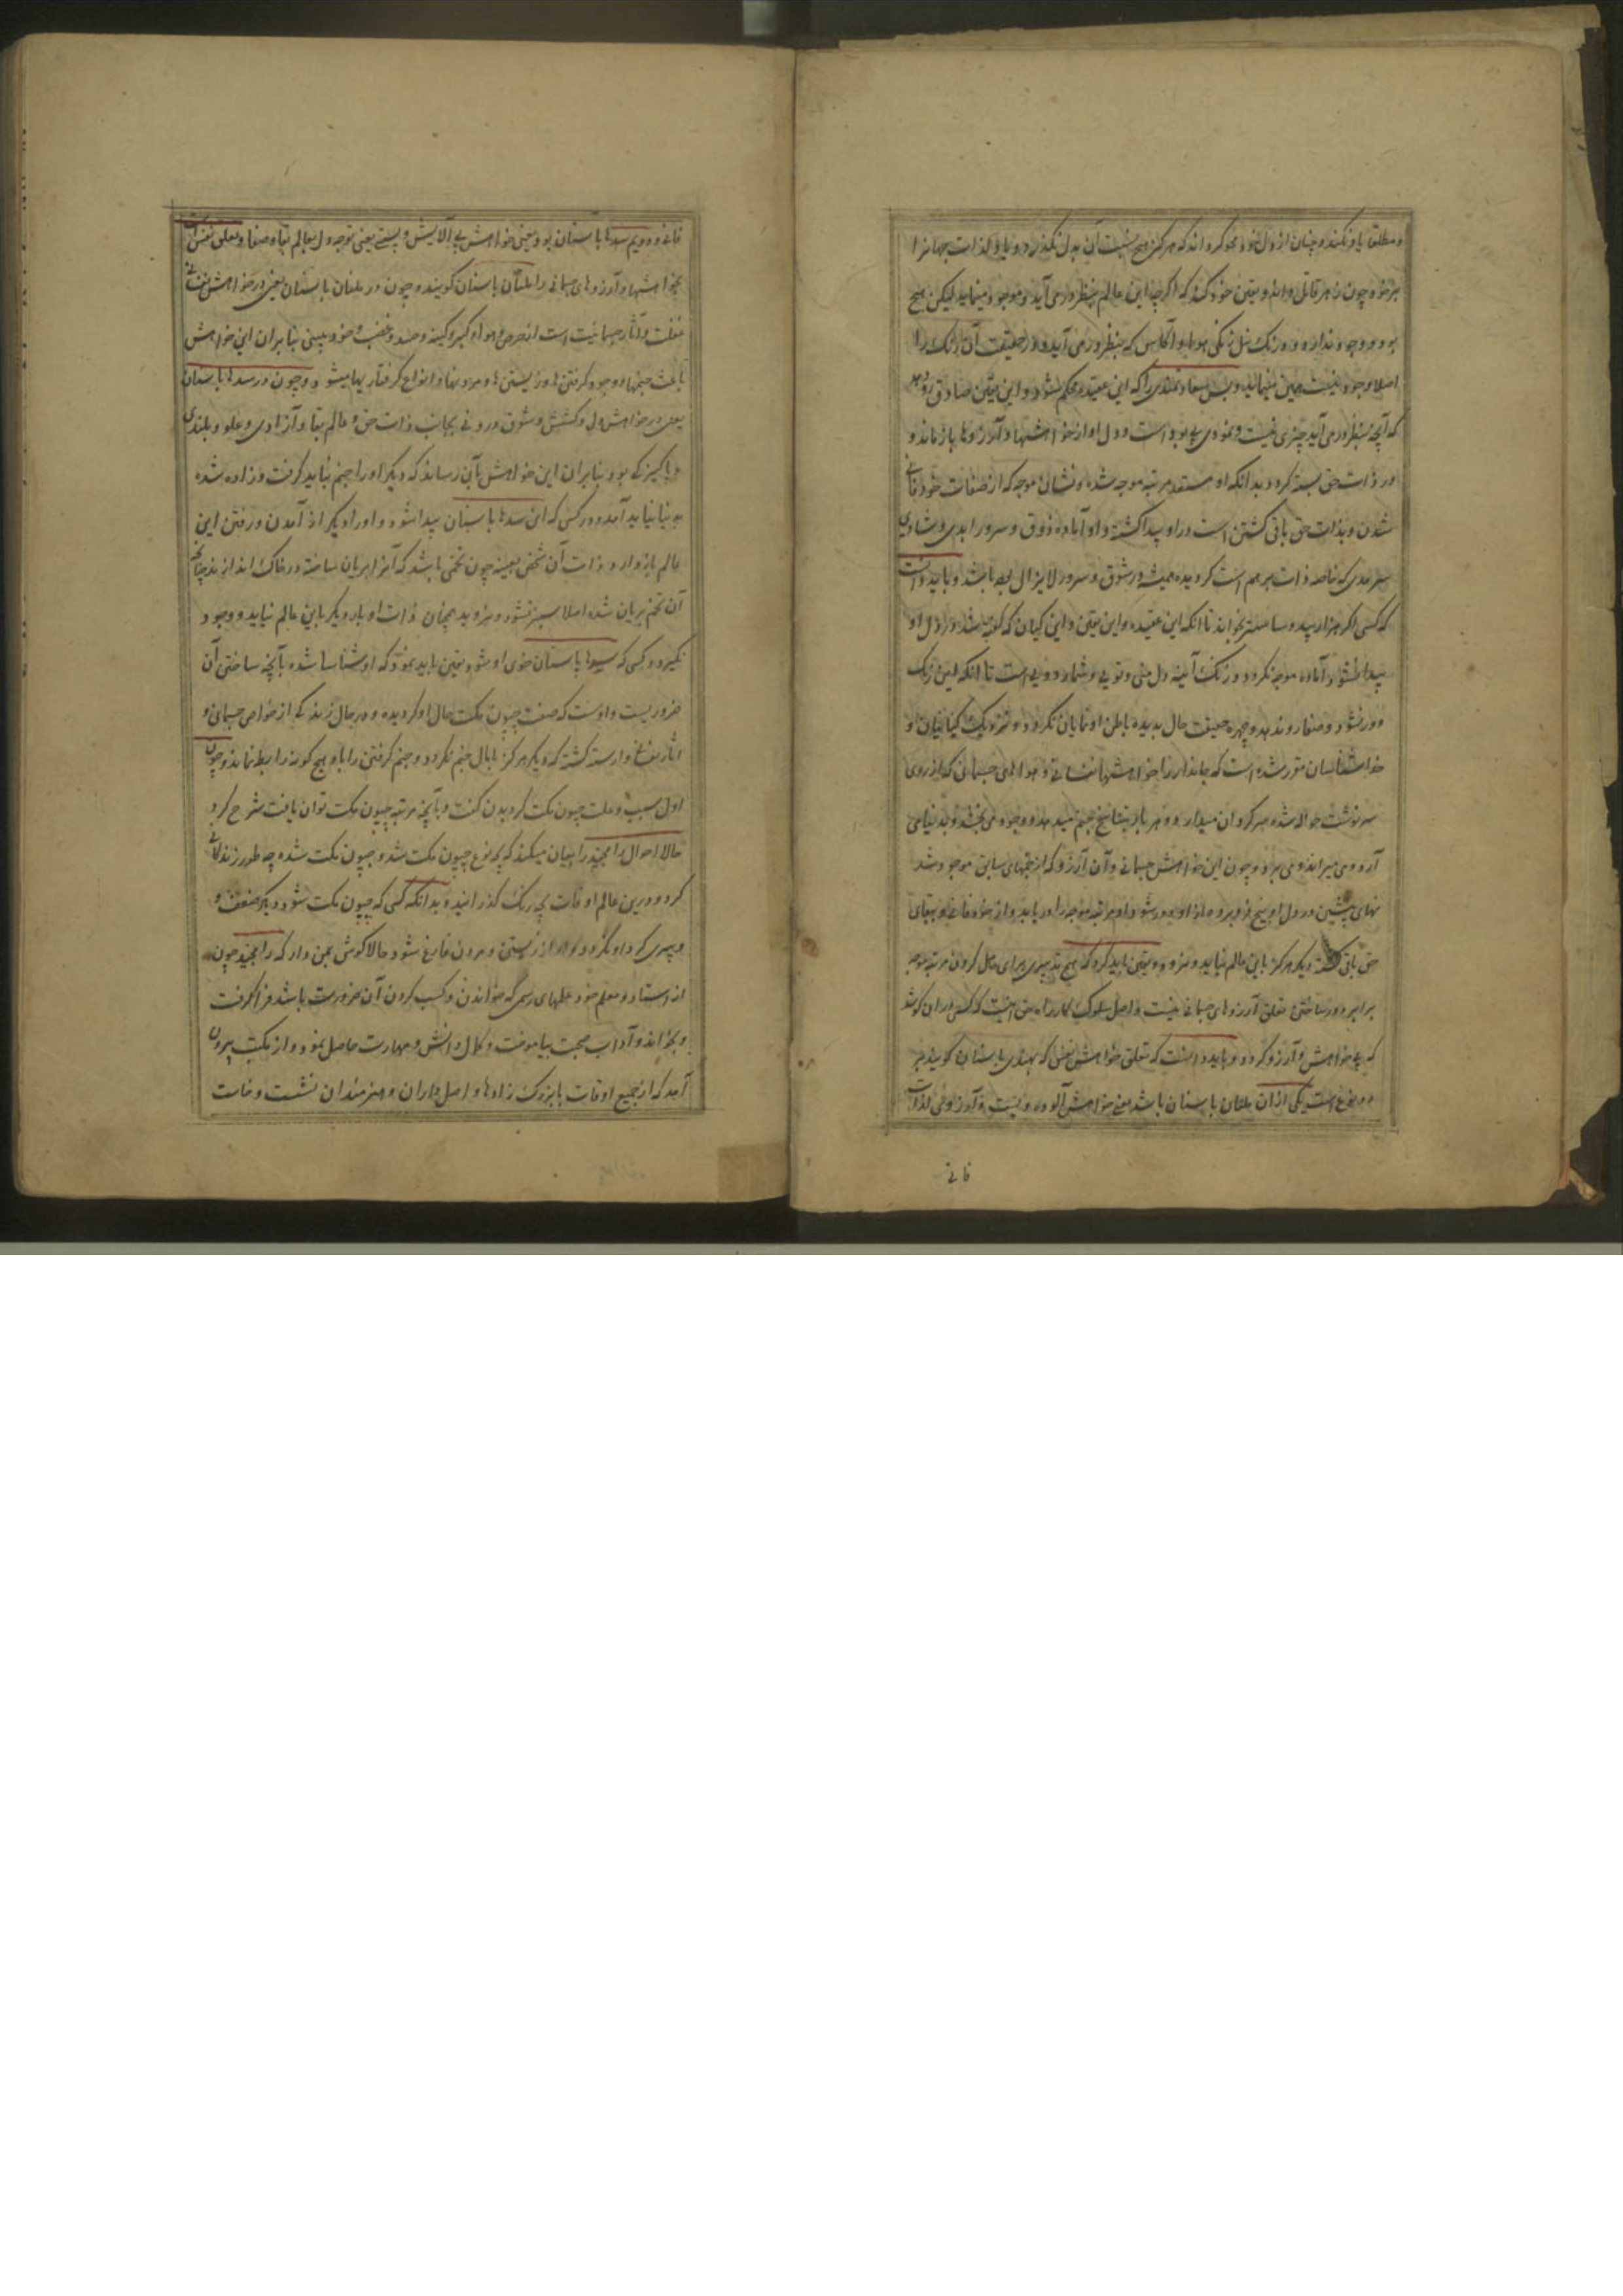 و مطلق یاد نکند و چنان از دل خود محو گرداند که هرگز هیچ نسبت آن بدل نگذرد و یاد لذات جهانرا
بر خود چون زهر قاتل داند و یقین خود کند که اگرچه این عالم بنظر در می آید و موجود مینماید لیکن هیچ
بود و وجود ندارد و در رنگ نیل رنگی هوا و آکاس که بنظر در می آید و در حقیقت آن رنگ را
اصلا وجود نیست همین مینماید و بس سعادتمندی را که این عقیده محکم شود و این یقین صادق رو دهد
که آنچه بنظر در می آید چیزی نیست و نمودی بی بود است و دل او از خواهشها و آرزوها باز ماند و
در ذات حق بسته گردد بدانکه او مستعد مرتبه موچه شده و نشان موچه که از صفات خود فانی
شدن و بذات حق باقی گشتن است در او پیدا گشته و او آماده ذوق و سرور ابدی و شادی
سرمدی که خاصه ذات برهم است گردیده همیشه در شوق و سرور لایزال می باشد و باید دانست
که کسی اگر هزار بید و ساستر بخواند تا آنکه این عقیده و این یقین و این گیان که گفته شد در دل او
پیدا نشود آماده موچه نگردد و زنگ آئینه دل منی و توئی و شمار دوئی است تا آنکه این زنگ
دور نشود و صفا رو ندهد و چهره حقیقت حال بدیده باطن او نمایان نگردد و نزدیک گیانیان و
خداشناسان مقرر شده است که جاندار را خواهشها نفسانی و هوا های جسمانی که از روی
سرنوشت حواله شده سرگردان میدارد و هر بار بتناسخ جنم میدهد و وجود می بخشد و بدنیا می
آرد و می میراند و می برد و چون این خواهش جسمانی و آن آرزو که از جنمهای سابق موجود شد
نهای پیشین در دل او بیخ فرو برده از او دور شود او مرتبه موچه را دریابد و از خود فانی و ببقای
حق باقی گشته دیگر هرگز باین عالم نیاید و نرود و یقین باید کرد که هیچ تدبیری برای حاصل کردن مرتبه موچه
برابر دور ساختن تعلق آرزوهای جسمانی نیست و اصل سلوک کار راه حق اینست که کسی در آن کوشد
که بی خواهش و آرزو گردد و باید دانست که تعلق خواهش نفس که بهندی باسنان گویند بر
دو نوع است یکی از آن ملنان باسنان باشد یعنی خواهش آلوده و پست و آرزوئی لذات
فانی
فانی و دویم سدها باسنان بود یعنی خواهش بی آلایش و پستی یعنی توجه دل بعالم بقا و صفا و تعلق نفس را
بخواهشها و آرزوهای جسمانی را ملنان باسنان گویند و چون در ملنان باسنان یعنی در خواهش نفسانی
غفلت و آثار جسمانیت است از حرص و هوا و کبر و کینه و حسد و غضب و خود بینی بنابران این خواهش
باعث جنمها و وجود گرفتن ها و زیستن ها و مردنها و انواع گرفتاریها میشود و چون در سدها باسنان
یعنی در خواهش دل و کشش و شوق درونی بجانب ذات حق و عالم بقا و آزادی و علو و بلندی
و پاکیزگی بود بنابران این خواهش بآن رساند که دیگر او را جنم نباید گرفت و زاده شده
بدنیا نباید آمد و در کسی که این سدها باسنان پیدا شود و او را دیگر از آمدن و رفتن این
عالم باز دارد و ذات آن شخص بعینه چون تخمی باشد که آنرا بریان ساخته در خاک اندازند چنانچه
آن تخم بریان شده اصلا سبز نشود و نروید همچنان ذات او بار دیگر باین عالم نیاید و وجود
نگیرد و کسی که سدها باسنان خوی او شود یقین باید نمود که او شناسا شده بآنچه ساختن آن
ضروریست و اوست که صفت جیون مکت حال او گردیده و در حال زندگی از خواص جسمانی و
آثار نفسانی وارسته گشته که دیگر هرگز بابال جنم نگردد و جنم گرفتن را باو هیچ گونه رابطه نماند و چون
اول سبب و علت جیون مکت گردیدن گفت و بآنچه مرتبه جیون مکت توان یافت شرح کرد
حالا احوال رامچند را بیان میکند که بچه نوع جیون مکت شد و جیون مکت شده چه طور زندگانی
کرد و درین عالم اوقات بچه رنگ گذرانید و بدانکه کسی که جیون مکت شود دیگر ضعف و
و پیری گرد او نگردد و او از زیستن و مردن فارغ شود حالا گوش بمن دار که رامچند چون
از استاد و معلم خود علمهای رسمی که خواندن و کسب کردن آن ضرورت باشد فرا گرفت
و بخواند و آداب صحبت بیاموخت و کمال دانش و مهارت حاصل نمود و از مکتب بیرون
آمد که از جمیع اوقات با بزرگ زادها و اصل داران و هنرمندان نشست و خاست